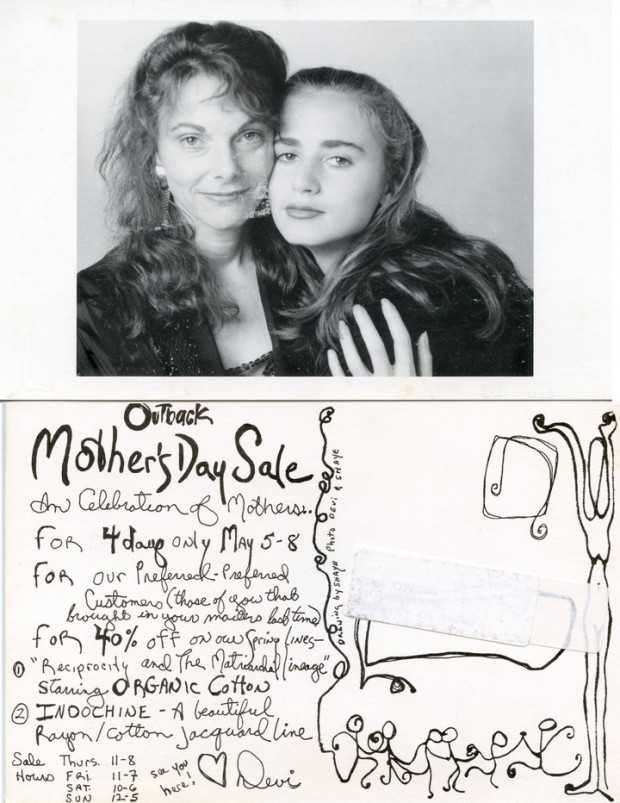 Outback
Mother's Day Sale
In Celebration of Mothers..
FOR 4 days only May 5-8
FOR our Preferred-Preferred
Customers (those of you that
brought in your mailers last time)
FOR 40% off on our Spring lines-
① "Reciprocity and The Matriarchal lineage"
starring ORGANIC COTTON
② INDOCHINE - A beautiful
Rayon/Cotton Jacquard line
Sale Thurs. 11-8
Hours FRI. 11-7
SAT. 10-6
SUN 12-5
see you
here!
♡ Devi
DRAWING by SHAYE Photo DEVI & SHAYE